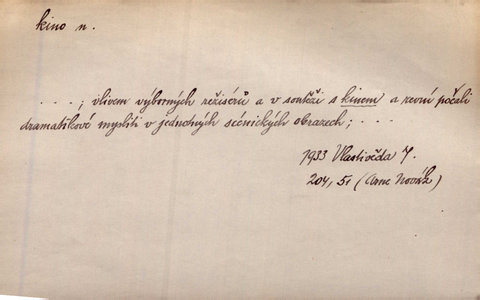 kino n.
. . . ; vlivem výborných režisérů a v soutěži s kinem a revuí počali
dramatikové mysliti v jednotných scénických obrazech; . . .
1933 Vlastivěda 7.
204, 51 (Arne Novák)